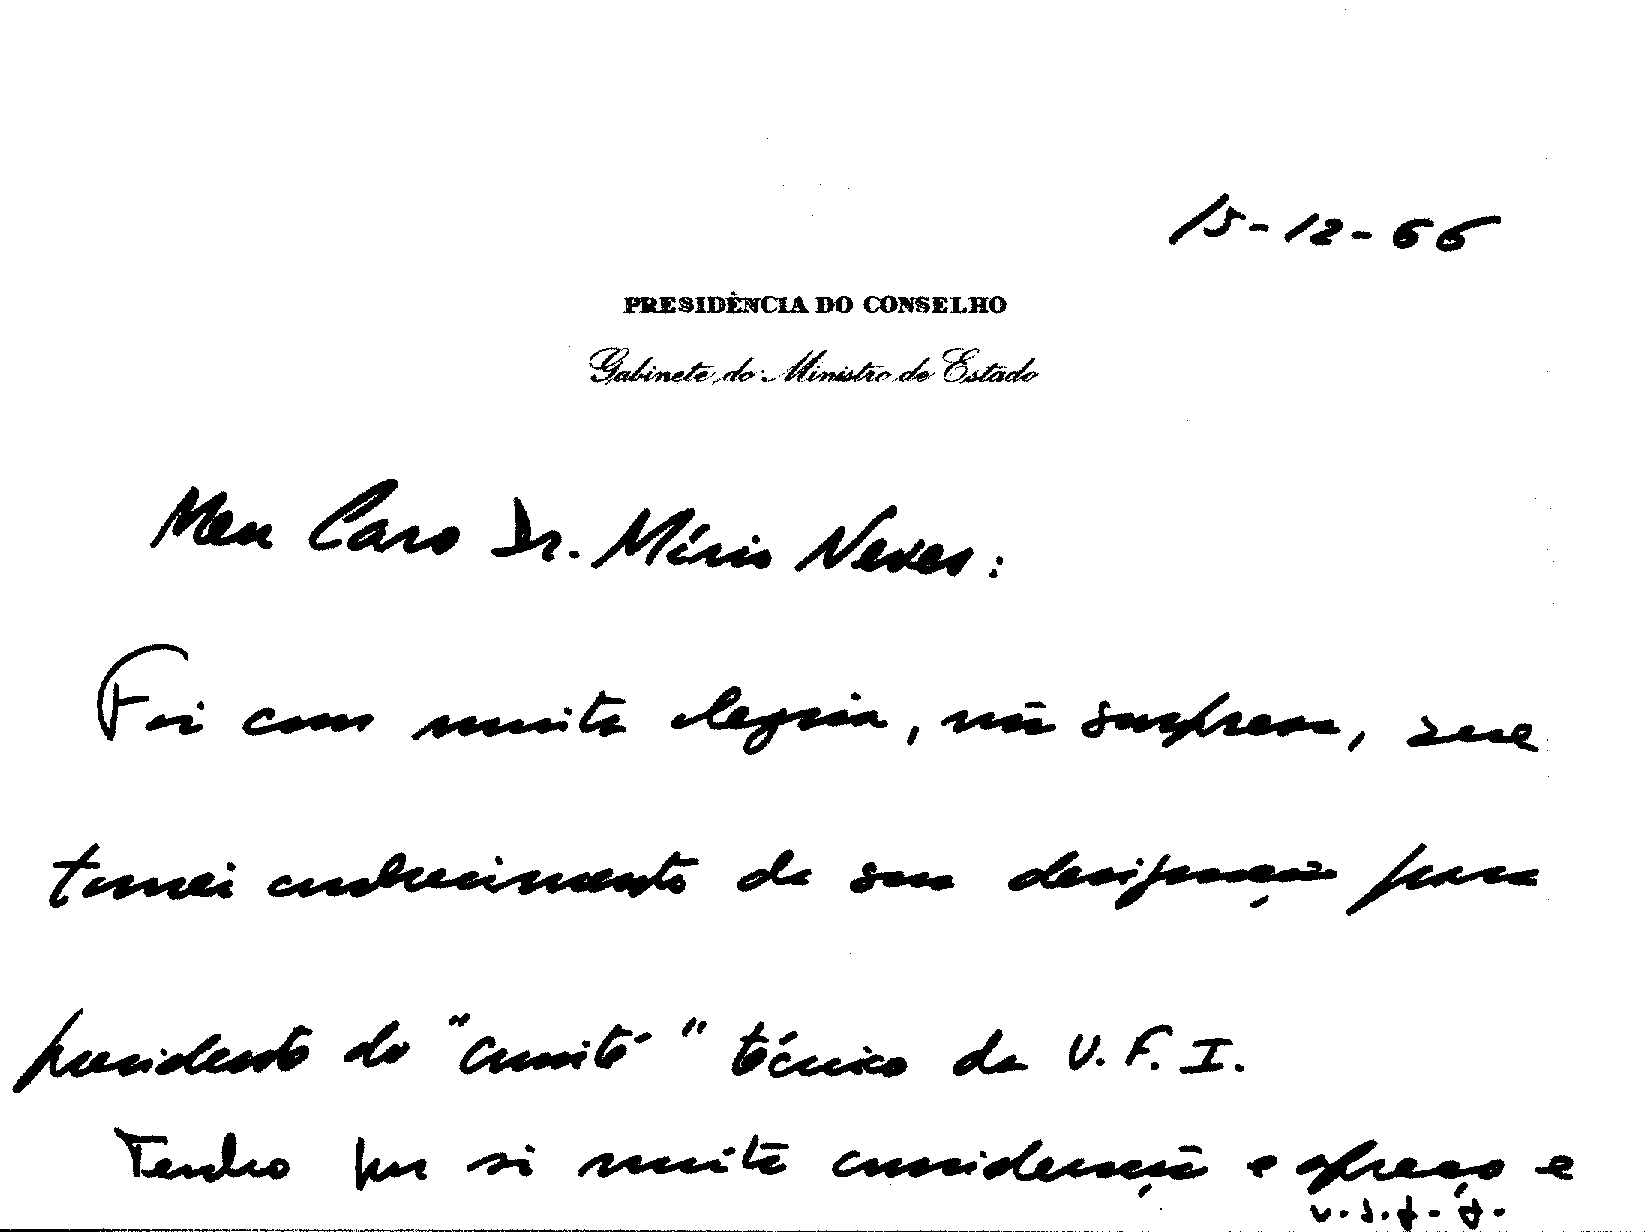 15-12-66
PRESIDÊNCIA DO CONSELHO
Gabinete do Ministro de Estado
Meu Caro Dr. Mário Neves:
Foi com muita alegria, não surpresa, que
tomei conhecimento da sua designação para
presidente do "Comité" técnico da U.F.I.
Tenho por si muita consideração e apreço e
v.s.f.f.